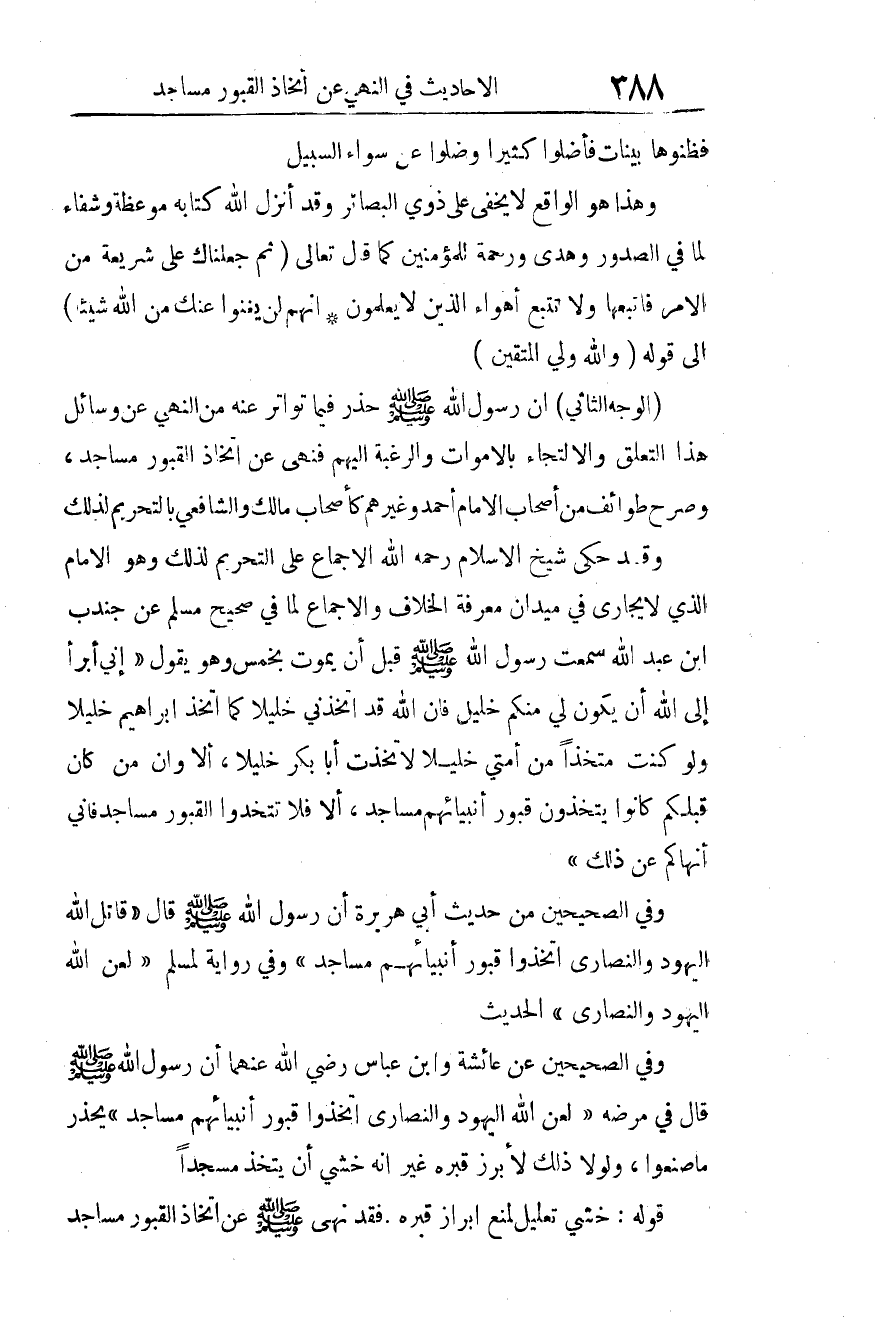 ٣٨٨ الاحاديث في النهي عن أتخاذ القبور مساجد
فظنوها بينات فأضلوا كثيرا وضلوا عن سواء السبيل
وهذا هو الواقع لا يخفى على ذوي البصائر وقد أنزل الله كتابه موعظة وشفاء
لما في الصدور وهدى ورحمة للمؤمنين كما قال تعالى ( ثم جعلناك على شريعة من
الامر فاتبعها ولا تتبع أهواء الذين لا يعلمون * انهم لن يغنوا عنك من الله شيئا )
الى قوله ( والله ولي المتقين )
(الوجه الثاني) ان رسول الله ﷺ حذر فيما تواتر عنه من النهي عن وسائل
هذا التعلق والالتجاء بالاموات والرغبة اليهم فنهى عن اتخاذ القبور مساجد ،
وصرح طوائف من أصحاب الامام أحمد وغيرهم كأصحاب مالك والشافعي بالتحريم لذلك
وقد حكى شيخ الاسلام رحمه الله الاجماع على التحريم لذلك وهو الامام
الذي لا يجارى في ميدان معرفة الخلاف والاجماع لما في صحيح مسلم عن جندب
ابن عبد الله سمعت رسول الله ﷺ قبل أن يموت بخمس وهو يقول « إني أبرأ
إلى الله أن يكون لي منكم خليل فان الله قد اتخذني خليلا كما اتخذ ابراهيم خليلا
ولو كنت متخذاً من أمتي خليلا لاتخذت أبا بكر خليلا ، ألا وان من كان
قبلكم كانوا يتخذون قبور أنبيائهم مساجد ، ألا فلا تتخدوا القبور مساجد فاني
أنهاكم عن ذلك »
وفي الصحيحين من حديث أبي هريرة أن رسول الله ﷺ قال « قاتل الله
اليهود والنصارى اتخذوا قبور أنبيائهم مساجد » وفي رواية لمسلم « لعن الله
اليهود والنصارى » الحديث
وفي الصحيحين عن عائشة وابن عباس رضي الله عنهما أن رسول الله ﷺ
قال في مرضه « لعن الله اليهود والنصارى اتخذوا قبور أنبيائهم مساجد » يحذر
ما صنعوا ، ولولا ذلك لأبرز قبره غير انه خشي أن يتخذ مسجداً
قوله : خشي تعليل لمنع ابراز قبره . فقد نهى ﷺ عن اتخاذ القبور مساجد